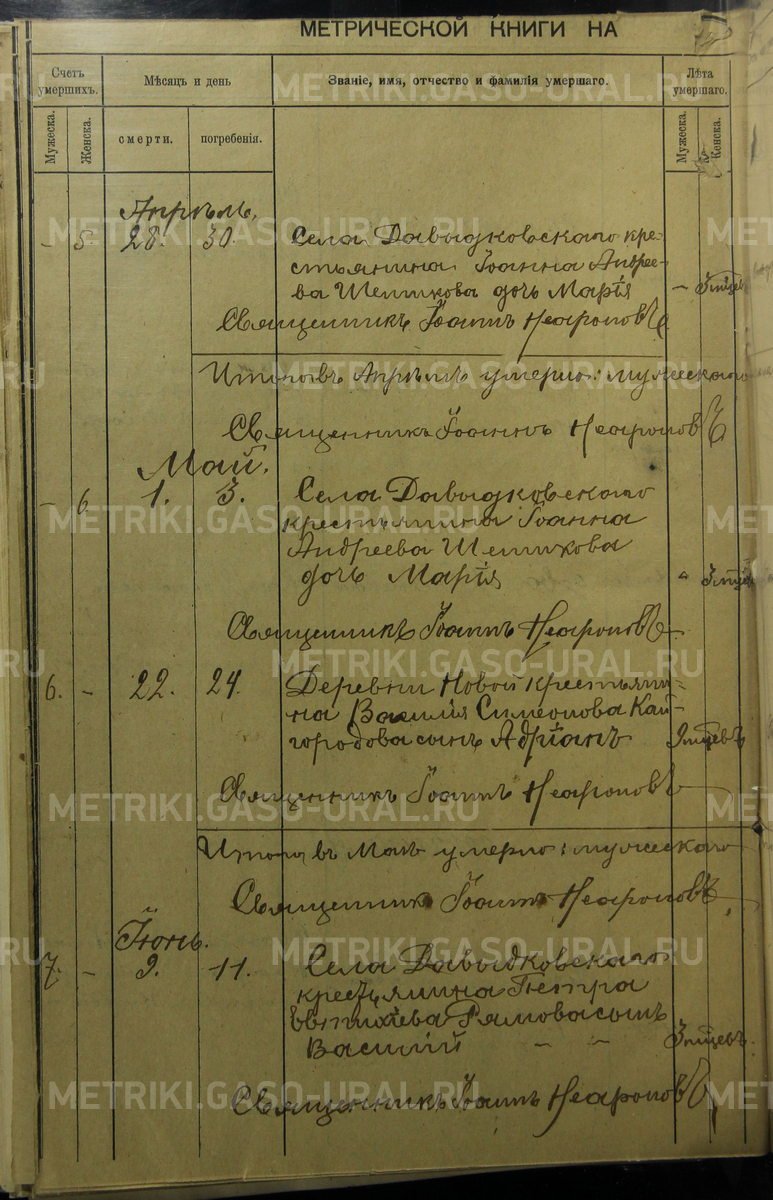 МЕТРИЧЕСКОЙ КНИГИ НА
Счетъ умершихъ.
Мѣсяцъ и день
Званіе, имя, отчество и фамилія умершаго.
Лѣта умершаго.
Мужеска.
Женска.
смерти.
погребенія.
Мужеска.
Женска.
Апрѣль.
- 5. 28. 30. Села Давыдковскаго кре-
стьянина Іоанна Андрее-
ва Шепикова дочь Марія -
Священникъ Іоаннъ Неароновъ
Итого въ Апрѣлѣ умерло: мужескаго
Священникъ Іоаннъ Неароновъ
Май.
- 6. 1. 3. Села Давыдковскаго
крестьянина Іоанна
Андреева Шепикова
дочь Марія -
Священникъ Іоаннъ Неароновъ
6. - 22. 24. Деревни Новой крестьяни-
на Василія Симеонова Кай-
городова сынъ Адріанъ
Священникъ Іоаннъ Неароновъ
Итого въ Маѣ умерло: мужескаго
Священникъ Іоаннъ Неароновъ
Іюнь.
7. - 9. 11. Села Давыдковскаго
крестьянина Петра
сынъ
Василій - -
Священникъ Іоаннъ Неароновъ
METRIKI.GASO-URAL.RU